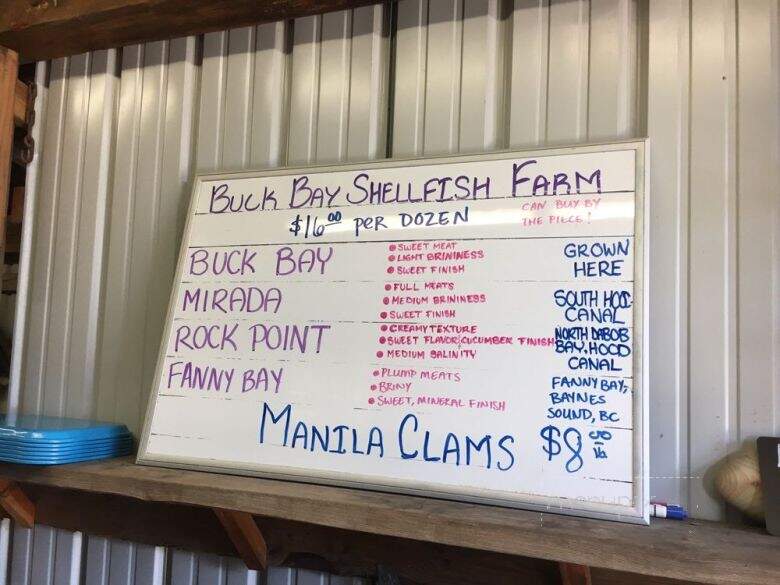 BUCK BAY SHELLFISH FARM
$16.00 PER DOZEN
CAN BUY BY
THE PIECE!
BUCK BAY
• SWEET MEAT
• LIGHT BRININESS
• SWEET FINISH
GROWN
HERE
MIRADA
• FULL MEATS
• MEDIUM BRININESS
• SWEET FINISH
SOUTH HOOD
CANAL
ROCK POINT
• CREAMY TEXTURE
• SWEET FLAVOR/CUCUMBER FINISH
• MEDIUM SALINITY
NORTH DABOB
BAY, HOOD
CANAL
FANNY BAY
• PLUMP MEATS
• BRINY
• SWEET, MINERAL FINISH
FANNY BAY,
BAYNES
SOUND, BC
MANILA CLAMS $8.50 lb